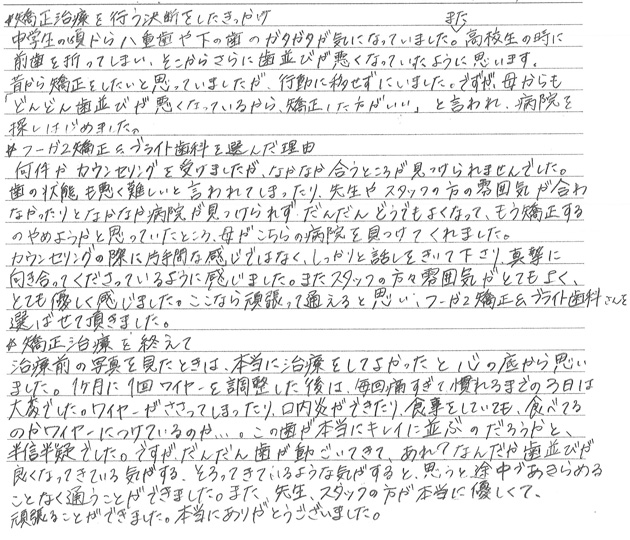 *矯正治療を行う決断をしたきっかけ
中学生の頃から八重歯や下の歯のガタガタが気になっていました。また高校生の時に
前歯を折ってしまい、そこからさらに歯並びが悪くなっていたように思います。
昔から矯正をしたいと思っていましたが、行動に移せずにいました。ですが、母からも
「どんどん歯並びが悪くなっているから、矯正した方がいい」と言われ、病院を
探しはじめました。
*フーガ2矯正&ブライト歯科を選んだ理由
何件かカウンセリングを受けましたが、なかなか合うところが見つけられませんでした。
歯の状態も悪く難しいと言われてしまったり、先生やスタッフの方の雰囲気が合わ
なかったりとなかなか病院が見つけられず、だんだんどうでもよくなって、もう矯正する
のやめようかと思っていたところ、母がこちらの病院を見つけてくれました。
カウンセリングの際に片手間な感じではなく、しっかりと話しをきいて下さり、真摯に
向き合ってくださっているように感じました。またスタッフの方々雰囲気がとてもよく、
とても優しく感じました。ここなら頑張って通えると思い、フーガ2矯正&ブライト歯科さんを
選ばせて頂きました。
*矯正治療を終えて
治療前の写真を見たときは、本当に治療をしてよかったと心の底から思い
ました。1ヶ月に1回ワイヤーを調整した後は、毎回痛すぎて慣れるまでの3日は
大変でした。ワイヤーがささってしまったり、口内炎ができたり、食事をしていても、食べてる
のかワイヤーにつけているのか...。この歯が本当にキレイに並ぶのだろうかと、
半信半疑でした。ですが、だんだん歯が動ごいてきて、あれ?なんだか歯並びが
良くなってきている気がする、そろってきているような気がすると、思うと途中であきらめる
ことなく通うことができました。また、先生、スタッフの方が本当に優しくて、
頑張ることができました。本当にありがとうございました。